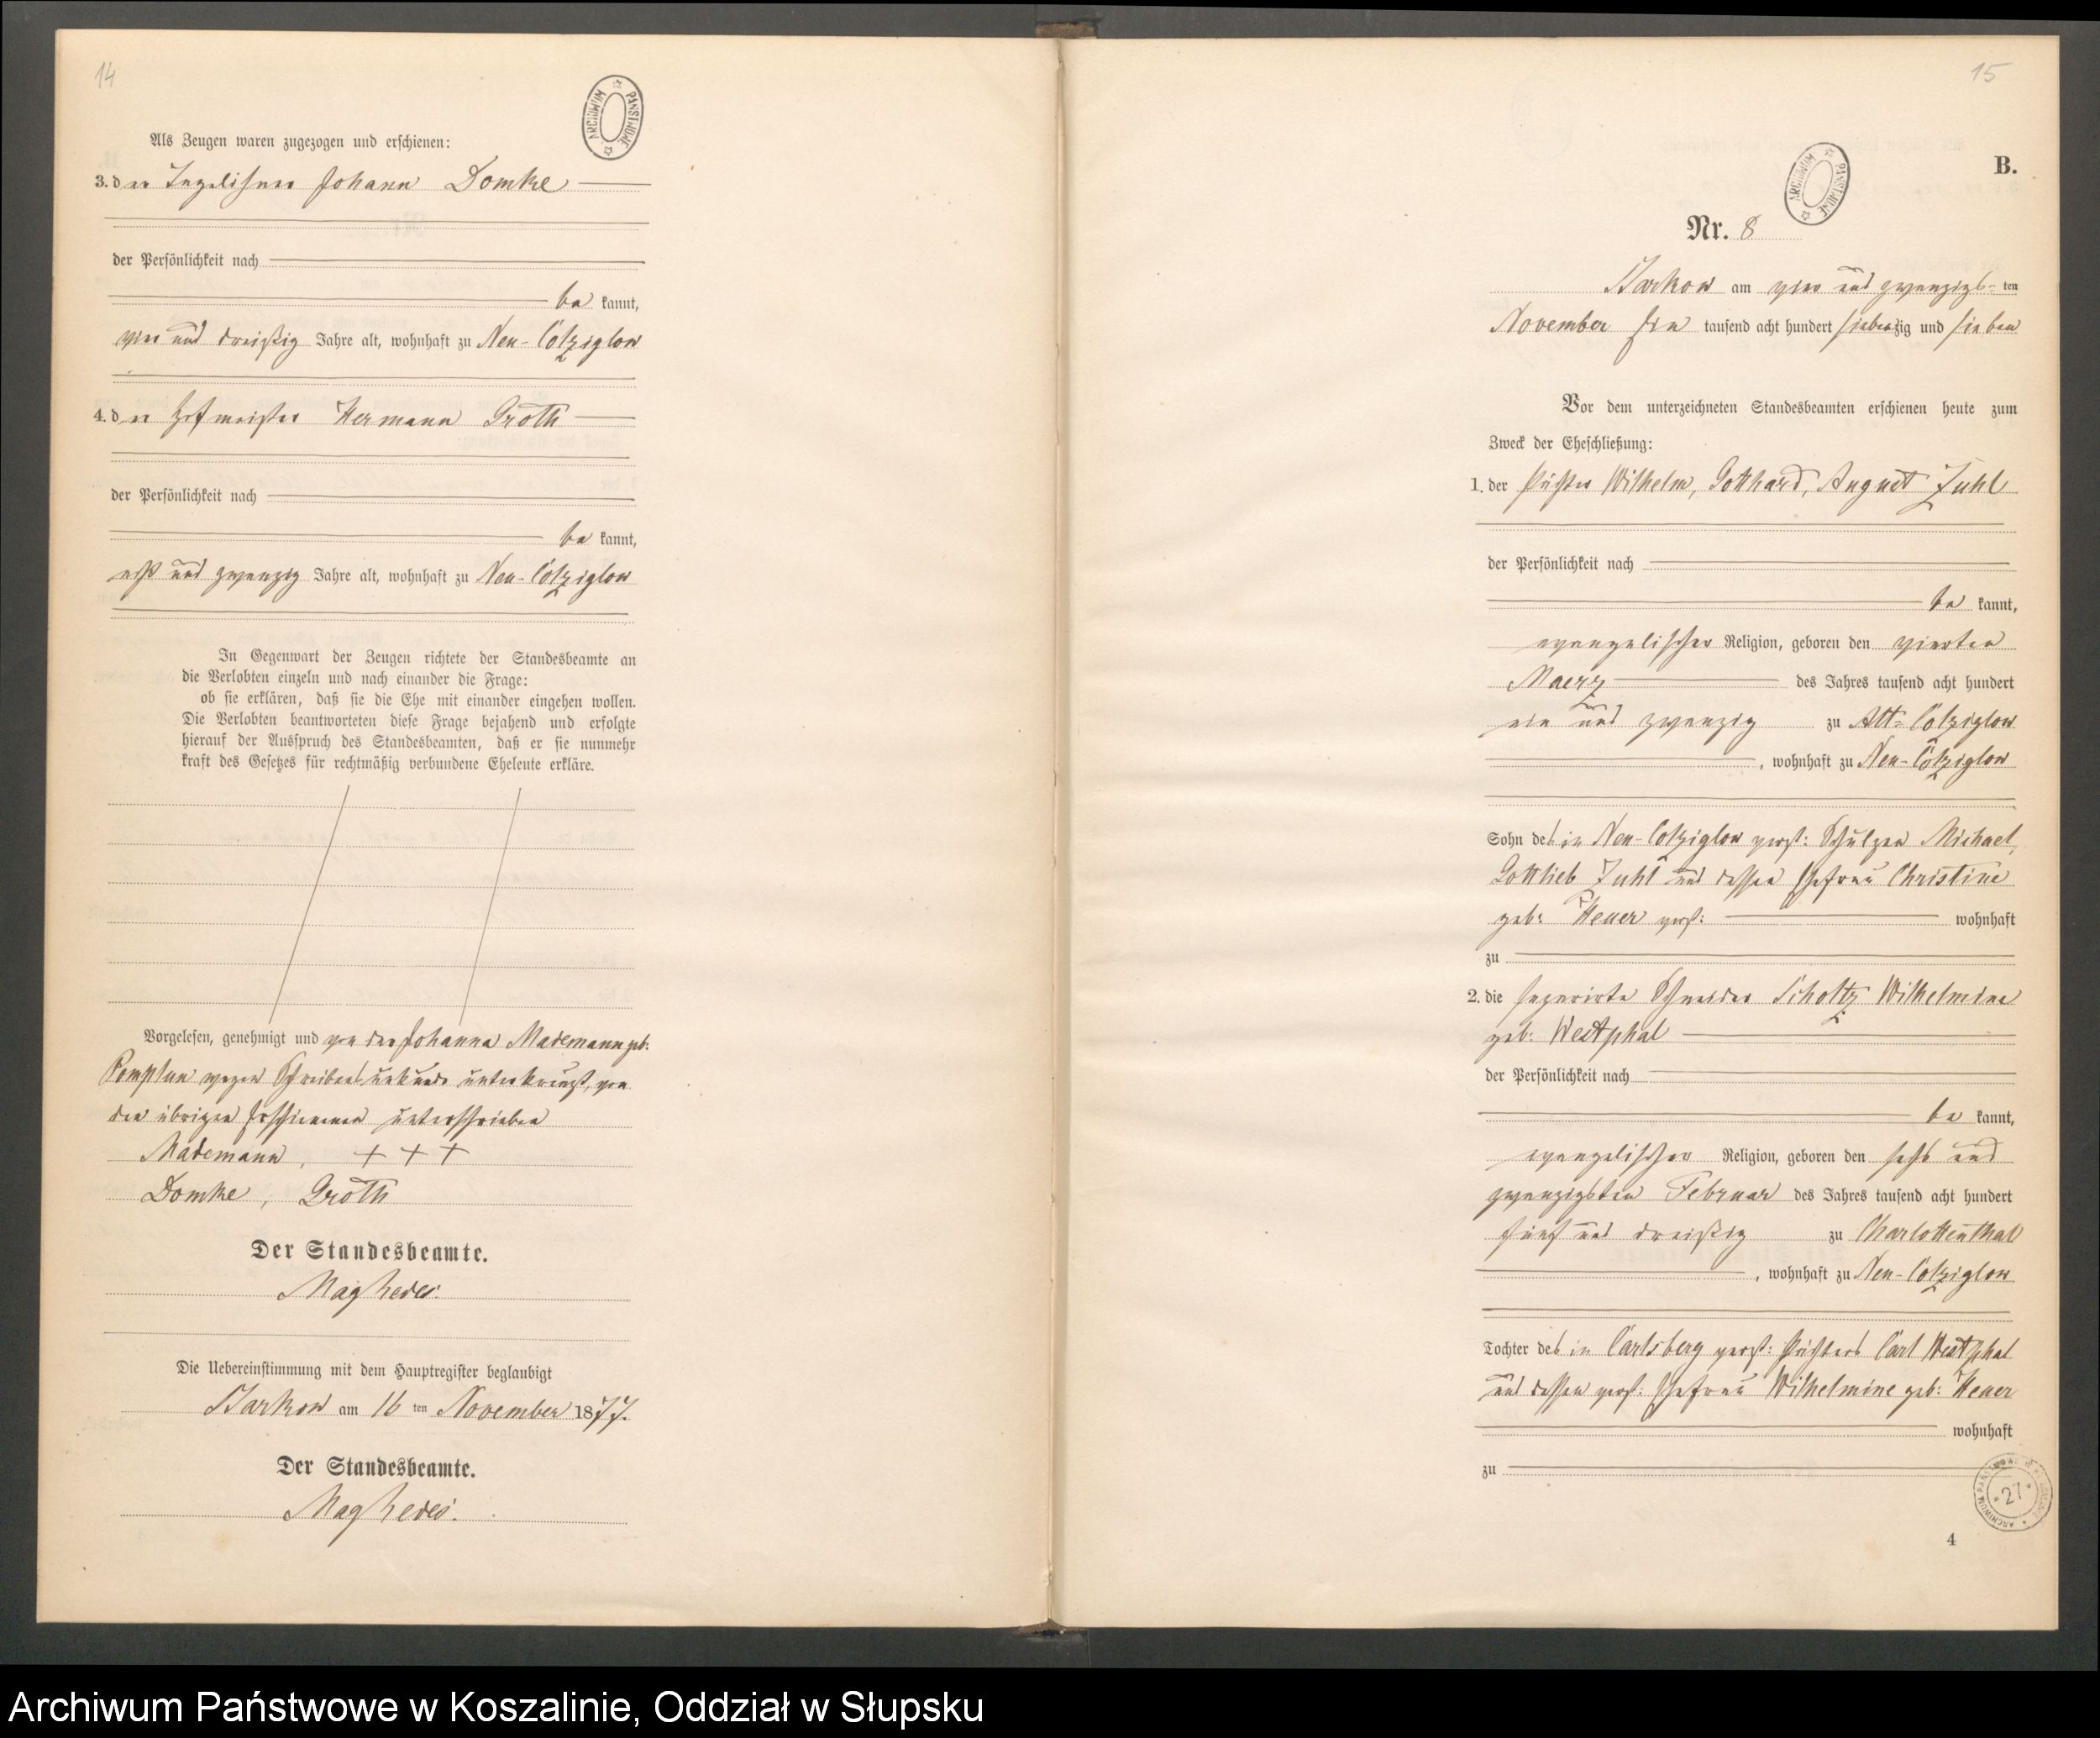 14
ARCHIWUM PAŃSTWOWE
Als Zeugen waren zugezogen und erschienen:
3. der Johann Domke
der Persönlichkeit nach
be kannt,
vier und dreißig Jahre alt, wohnhaft zu Neu-Colziglow
4. der Hofmeister Hermann Groth
der Persönlichkeit nach
be kannt,
acht und zwanzig Jahre alt, wohnhaft zu Neu-Colziglow
In Gegenwart der Zeugen richtete der Standesbeamte an
die Verlobten einzeln und nach einander die Frage:
ob sie erklären, daß sie die Ehe mit einander eingehen wollen.
Die Verlobten beantworteten diese Frage bejahend und erfolgte
hierauf der Ausspruch des Standesbeamten, daß er sie nunmehr
kraft des Gesetzes für rechtmäßig verbundene Eheleute erkläre.
Vorgelesen, genehmigt und von der Johanna Mademann geb:
wegen Schreibensunkunde unterkreuzt, von
den übrigen Erschienenen unterschrieben
Mademann, + + +
Domke, Groth
Der Standesbeamte.
Die Uebereinstimmung mit dem Hauptregister beglaubigt
Barkow am 16 ten November 1877.
Der Standesbeamte.
15
ARCHIWUM PAŃSTWOWE
B.
Nr. 8
Barkow am vier und zwanzigs- ten
November Ein tausend acht hundert siebenzig und sieben
Vor dem unterzeichneten Standesbeamten erschienen heute zum
Zweck der Eheschließung:
1. der Wilhelm, Gotthard, August Zuhl
der Persönlichkeit nach
be kannt,
evangelischer Religion, geboren den vierten
Maerz des Jahres tausend acht hundert
ein und zwanzig zu Alt-Colziglow
, wohnhaft zu Neu-Colziglow
Sohn des in Neu-Colziglow verst: Schulzen Michael,
Gottlieb Zuhl und dessen Ehefrau Christine
geb: Heuer verst: wohnhaft
zu
2. die separirte Schneider Scholtz Wilhelmine
geb: Westphal
der Persönlichkeit nach
be kannt,
evangelischer Religion, geboren den sechs und
zwanzigsten Februar des Jahres tausend acht hundert
fünf und dreißig zu Charlottenthal
, wohnhaft zu Neu-Colziglow
Tochter des in Carlsberg verst: Carl Westphal
und dessen verst: Ehefrau Wilhelmine geb: Heuer
wohnhaft
zu
27
4
Archiwum Państwowe w Koszalinie, Oddział w Słupsku